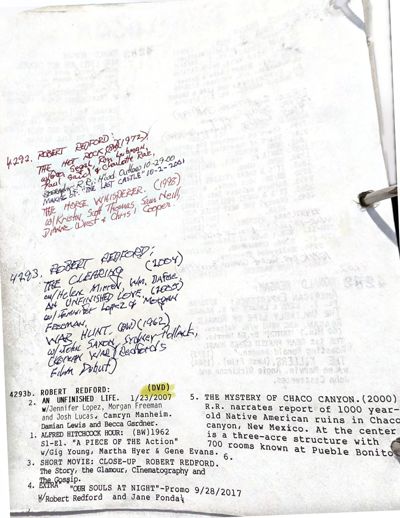 4292. ROBERT REDFORD:
THE HOT ROCK (1972)
w/Geo. Segal, Ron Leibman,
Paul Sand & Charlotte Rae,
R.R.: Mind Outlaws 10-29-00
MAKING OF: "THE LAST CASTLE" 10-2-2001
THE HORSE WHISPERER. (1998)
w/Kristin Scott Thomas, Sam Neill,
Dianne Wiest & Chris Cooper.
4293. ROBERT REDFORD:
THE CLEARING (2004)
w/Helen Mirren, Wm. Dafoe
AN UNFINISHED LOVE. (2005)
w/Jennifer Lopez & Morgan
Freeman.
WAR HUNT. (BW) (1962)
w/John Saxon, Sydney Pollack,
(KOREAN WAR) (Redford's
Film Debut)
4293b. ROBERT REDFORD: (DVD)
2. AN UNFINISHED LIFE. 1/23/2007
w/Jennifer Lopez, Morgan Freeman
and Josh Lucas, Camryn Manheim.
Damian Lewis and Becca Gardner.
1. ALFRED HITCHCOCK HOUR: (BW)1962
S1-E1. "A PIECE OF THE Action"
w/Gig Young, Martha Hyer & Gene Evans.
3. SHORT MOVIE: CLOSE-UP ROBERT REDFORD.
The Story, the Glamour, Cinematography and
The Gossip.
4. EXTRA "OUR SOULS AT NIGHT"-Promo 9/28/2017
w/Robert Redford and Jane Fonda
5. THE MYSTERY OF CHACO CANYON.(2000)
R.R. narrates report of 1000 year-
old Native American ruins in Chaco
canyon, New Mexico. At the center
is a three-acre structure with
700 rooms known at Pueblo Bonito
6.